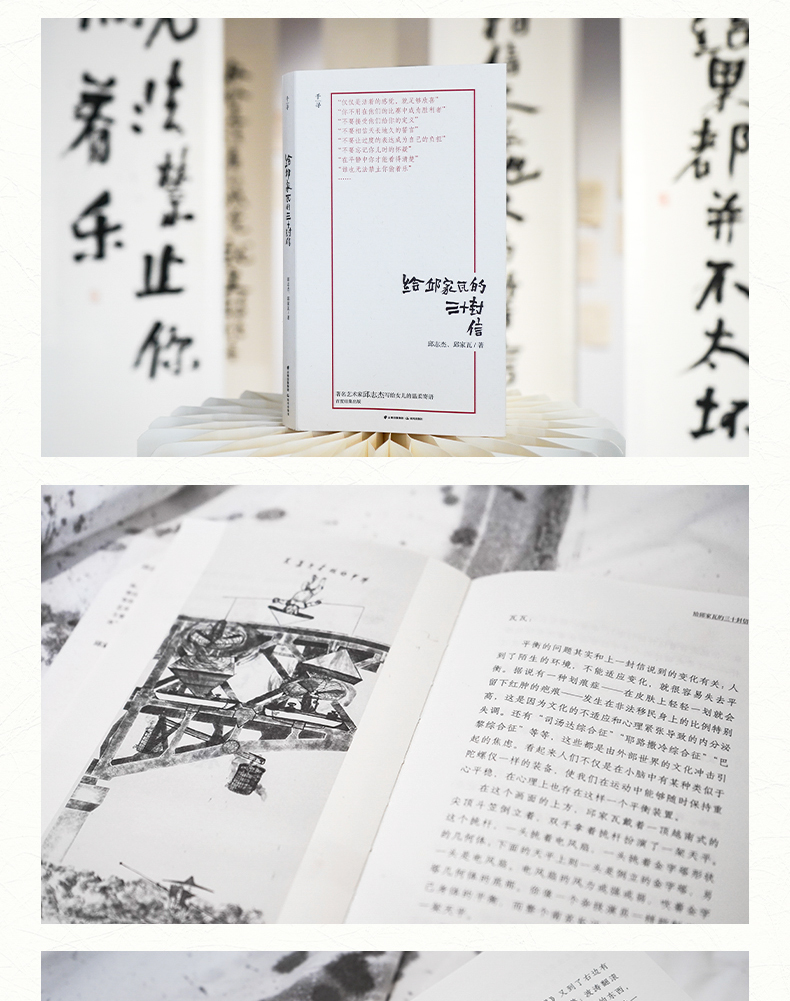 着
乐
法
禁
止
你
结
果
都
并
不
太
坏
千寻
给邱家瓦的三十封信
邱志杰、邱家瓦 / 著
“仅仅是活着的感觉，就足够欣喜”
“你不用在我们的比赛中成为胜利者”
“不要接受我们给你的定义”
“不要相信天长地久的誓言”
“不要让过度的表达成为自己的负担”
“不要忘记你儿时的怀疑”
“在平静中你才能看得清楚”
“谁也无法禁止你偷着乐”
……
给邱家瓦的
三十封
信
邱志杰、邱家瓦 / 著
著名艺术家邱志杰写给女儿的温柔寄语
给邱家瓦的三十封信
瓦瓦：
平衡的问题其实和上一封信说到的变化有关：人
到了陌生的环境，不能适应变化，就很容易失去平
衡。据说有一种划痕症——在皮肤上轻轻一划就会
留下红肿的疤痕——发生在非法移民身上的比例特别
高，这是因为文化的不适应和心理紧张导致的内分泌
失调。还有“司汤达综合征”“耶路撒冷综合征”“巴
黎综合征”等等，这些都是由外部世界的文化冲击引
起的焦虑。看起来人们不仅是在小脑中有某种类似于
陀螺仪一样的装备，使我们在运动中能够随时保持重
心平稳，在心理上也存在这样一个平衡装置。
在这个画面的上方，邱家瓦戴着一顶越南式的
尖顶斗笠倒立着，双手拿着挑杆扮演了一架天平。
这个挑杆，一头挑着电风扇，一头挑着金字塔形状
的几何体。下面的天平上则一头是倒立的金字塔，另
一头是电风扇。电风扇的风力或强或弱，吹着金字
塔几何体的底部，
一架天平。
》又到了右边有
，波涛翻滚
的东西，